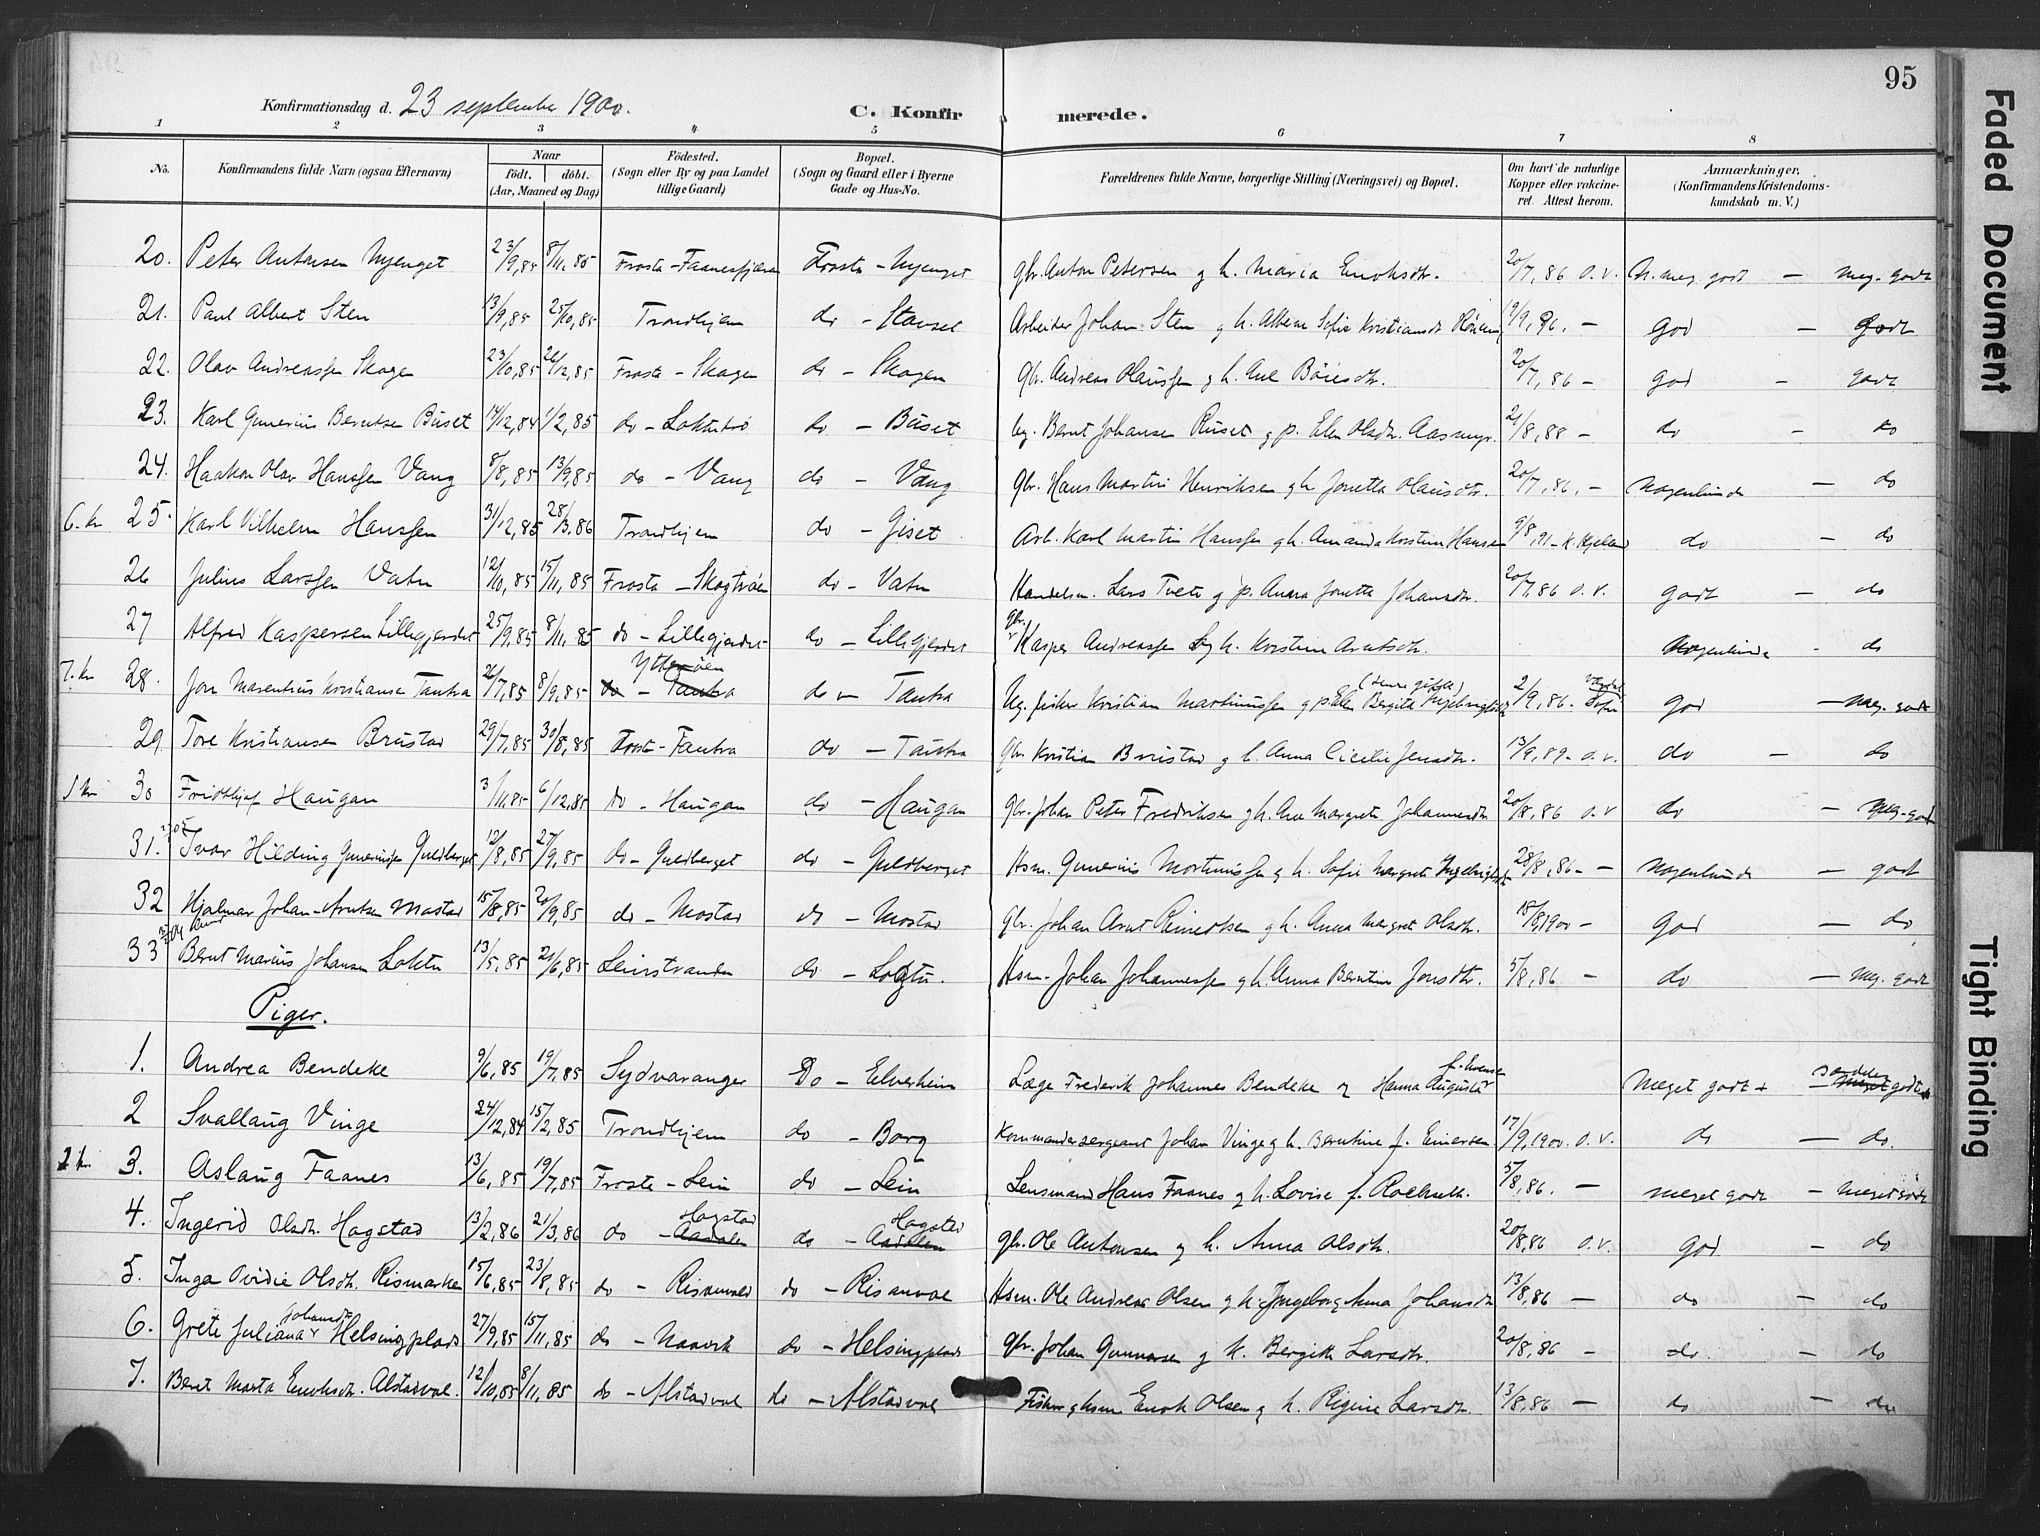 95
Konfirmationsdag d. 23 september 1900. C. Konfirmerede.
1 2 3 4 5 6 7 8
No. Konfirmandens fulde Navn (ogsaa Efternavn) Naar födt. döbt. (Aar, Maaned og Dag) Födested. (Sogn eller By og paa Landet tillige Gaard) Bopæl. (Sogn og Gaard eller i Byerne Gade og Hus-No. Forældrenes fulde Navne, borgerlige Stilling (Næringsvei) og Bopæl. Om havt de naturlige Kopper eller vakcineret. Attest herom. Anmærkninger, (Konfirmandens Kristendomskundskab m. V.)
20. Peter Antonsen Nyenget 23/9,85 8/11,85 Frosta - Faanesfjæren Frosta - Nyenget Gbr. Anton Petersen og h. Maria Enoksdtr. 20/7,86 O.V. N. meg. godt - meg. godt
21. Paul Albert Sten 13/9,85 25/10,85 Trondhjem do - Stavset Arbeider Johan Sten og h. Sofie Kristiansdt 19/9,86. - God - Godt
22. Olav Andreassen Skogen 23/10,85 26/12,85 Frosta - Skogen do - Skogen Gbr. Andreas Olaussen og h. Ane Böiesdtr. 20/7,86 - god - godt
23. Karl Gunerius Berntsen Buset 14/12,84 1/2,85 do - Loktutrö do - Buset Ug. Bernt Johansen Ruset og p. Elen Olsdtr. Aasmyr. 21/8,88 - do - do
24. Haakon Olav Hanssen Vang 8/8,85 13/9,85 do - Vang do - Vang Gbr. Hans Martin Henriksen og h. Jonetta Olausdtr. 20/7,86. - nogenlunde - do
6. kr 25. Karl Vilhelm Hanssen 31/12,85 28/3,86 Trondhjem do - Giset Arb. Karl Martin Hanssen og h. Amanda Kristine Hansen 9/8,91 - K. do - do
26 Julius Larssen Vatn 12/10,85 15/11,85 Frosta - Skogtröen do - Vatn Handelsm. Lars Tvete og p. Anna Jonetta Johansdtr. 20/7,86 O.V. godt - do
27 Alfred Kaspersen Lillegjerdet 25/9,85 8/11,85 do - Lillegjerdet do - Lillegjerdet gbr. Kasper Andreassen og h. Kristine Arntsdtr. nogenlunde - do
7. kr 28. Jon Marentius Kristiansen Tautra 26/7,85 8/9,85 Ytterøen do - Tautra do - Tautra Ug. fisker Kristian Martinussen og p. Elen Bergitte Ingebrigtsdtr 2/9,86. god - meg. godt
29. Tore Kristiansen Brustad 29/7,85 30/8,85 Frosta - Tautra do - Tautra Gbr. Kristian Brustad og h. Anna Cicilie Jensdtr. 13/9,89 - O.V. do - do
1 kr 30 Fridthjof Haugan 3/11,85 6/12,85 do - Haugan do - Haugan Gbr. Johan Peter Fredriksen og h. Ane Margrete Johannesdtr 20/8,86 O.V do - meg. godt
31. Ivar Hilding Gunerinssen Guldberget 12/8,85 27/9,85 do - Guldberget do - Guldberget Hsm. Gunerius Mortinussen og h. Sofie Margrete Ingebrigtsdtr 28/8,86 - - nogenlunde - godt
32 Hjalmar Johan Arntsen Mostad 15/8,85 20/9,85 do - Mostad do - Mostad Gbr. Johan Arnt Reinertsen og h. Anna Margret Olsdtr. 18/8,1900 - god - do
33 Bernt Marius Johansen Loktu 13/5,85 21/6,85 Leinstranden do - Logtu. Hsm. Johan Johannessen og h. Anna Berntine Jonsdtr. 5/8,86 - do - meg. godt
Piger.
1. Andrea Bendeke 9/6,85 19/7,85 Sydvaranger Do - Elverheim Læge Frederik Johannes Bendeke og Hanna Augusta f. Evensen Meget godt + - særdeles meget godt
2 Svallaug Vinge 24/12,84 15/2,85 Trondhjem do - Borg Kommandersergeant Johan Vinge og h. Berntine f. Einersen 17/9,1900. O.V. do - do.
2 kr. 3. Aslaug Faanes 13/6,85 19/7,85 Frosta - Lein do - Lein Lensmand Hans Faanes og h. Lovise f. 5/8,86. - meget godt - meget godt
4. Ingerid Olsdtr. Hogstad 13/2,86 21/3,86 do - Aadalen Hogstad do - Aadalen Hogstad gbr. Ole Antonsen og h. Anna Olsdtr. 20/8,86 O.V. god - do
5. Inga Ovidie Olsdtr. Rismarka 15/6,85 23/8,85 do - Risanvold do - Risanvol Hsm. Ole Andreas Olsen og h. Ingeborg Anna Johansdtr 13/8,86 - do - do
6. Grete Juliana Johansdtr Helsingplads 27/9,85 15/11,85 do - Naavik do - Helsingplads gbr. Johan Gunnarsen og h. Bergitte Larsdtr. 20/8,86 - do - do
7. Beret Marta Enoksdtr. Alstadvol. 12/10,85 8/11,85 do - Alstadvol do - Alstadvol Fisker og hsm Enok Olsen og h. Regine Larsdtr. 13/8,86 - do - do
Faded Document
Tight Binding